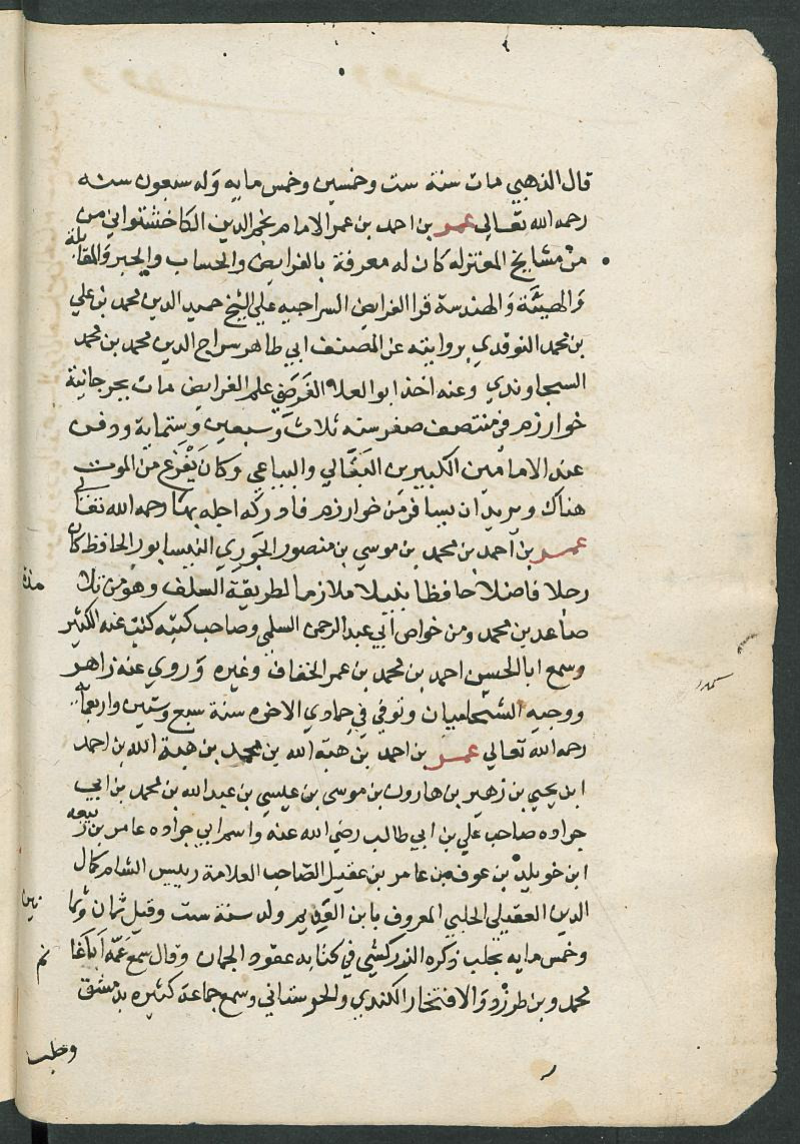 قال الذهبي مات سنة ست وخمسين وخمس مايه وله سبعون سنه
رحمه الله تعالى عمر بن احمد بن عمر الامام نجم الدين الكاخشتواني من
من مشايخ المعتزله كان له معرفة بالفرايض والحساب والجبر والمقابلة
والهيئة والهندسة قرا الفرايض السراجيه على الشيخ حميد الدين محمد بن علي
بن محمد النوقدي بروايته عن المصنف ابي طاهر سراج الدين محمد بن محمد
السجاوندي وعنه اخذ ابو العلاء الفرضي علم الفرايض مات بجرجانية
خوارزم في منتصف صفر سنه ثلاث وسبعين وستماية ودفن
عند الامامين الكبيرين البقالي والبياعي وكان يفزع من الموت
هناك ويريد ان يسافر من خوارزم فادركه اجله بها رحمه الله تعالى
عمر بن احمد بن محمد بن موسى بن منصور الجوري النيسابوري الحافظ كان
رجلا فاضلا حافظا نبيلا ملازما لطريقة السلف وهو من تلا
مذة
صاعد بن محمد ومن خواص ابي عبد الرحمن السلمي وصاحب كتبه كتب عنه الكثير
وسمع ابا الحسين احمد بن محمد بن عمر الخفاف وغيره وروي عنه زاهر
ووجيه الشحاميان وتوفي في جمادي الاخره سنة سبع وستين واربعماية
رحمه الله تعالى عمر بن احمد بن هبة الله بن محمد بن هبة الله بن احمد
ابن يحيي بن زهير بن هارون بن موسى بن عيسي بن عبد الله بن محمد بن ابي
جراده صاحب علي بن ابي طالب رضي الله عنه واسم ابي جراده عامر بن ربيعه
ابن خويلد بن عوف بن عامر بن عقيل الصاحب العلامة رييس الشام كمال
الدين العقيلي الحلبي المعروف بابن العديم ولد سنة ست وقيل ثمان وثما
نين
وخمس مايه بحلب ذكره الزركشي في كتابه عقود الجمان وقال سمع عمه ابا غا
نم
محمد وبن طبرزد والافتخار الكندي والحرستاني وسمع جماعة كثيره بدمشق
وحلب